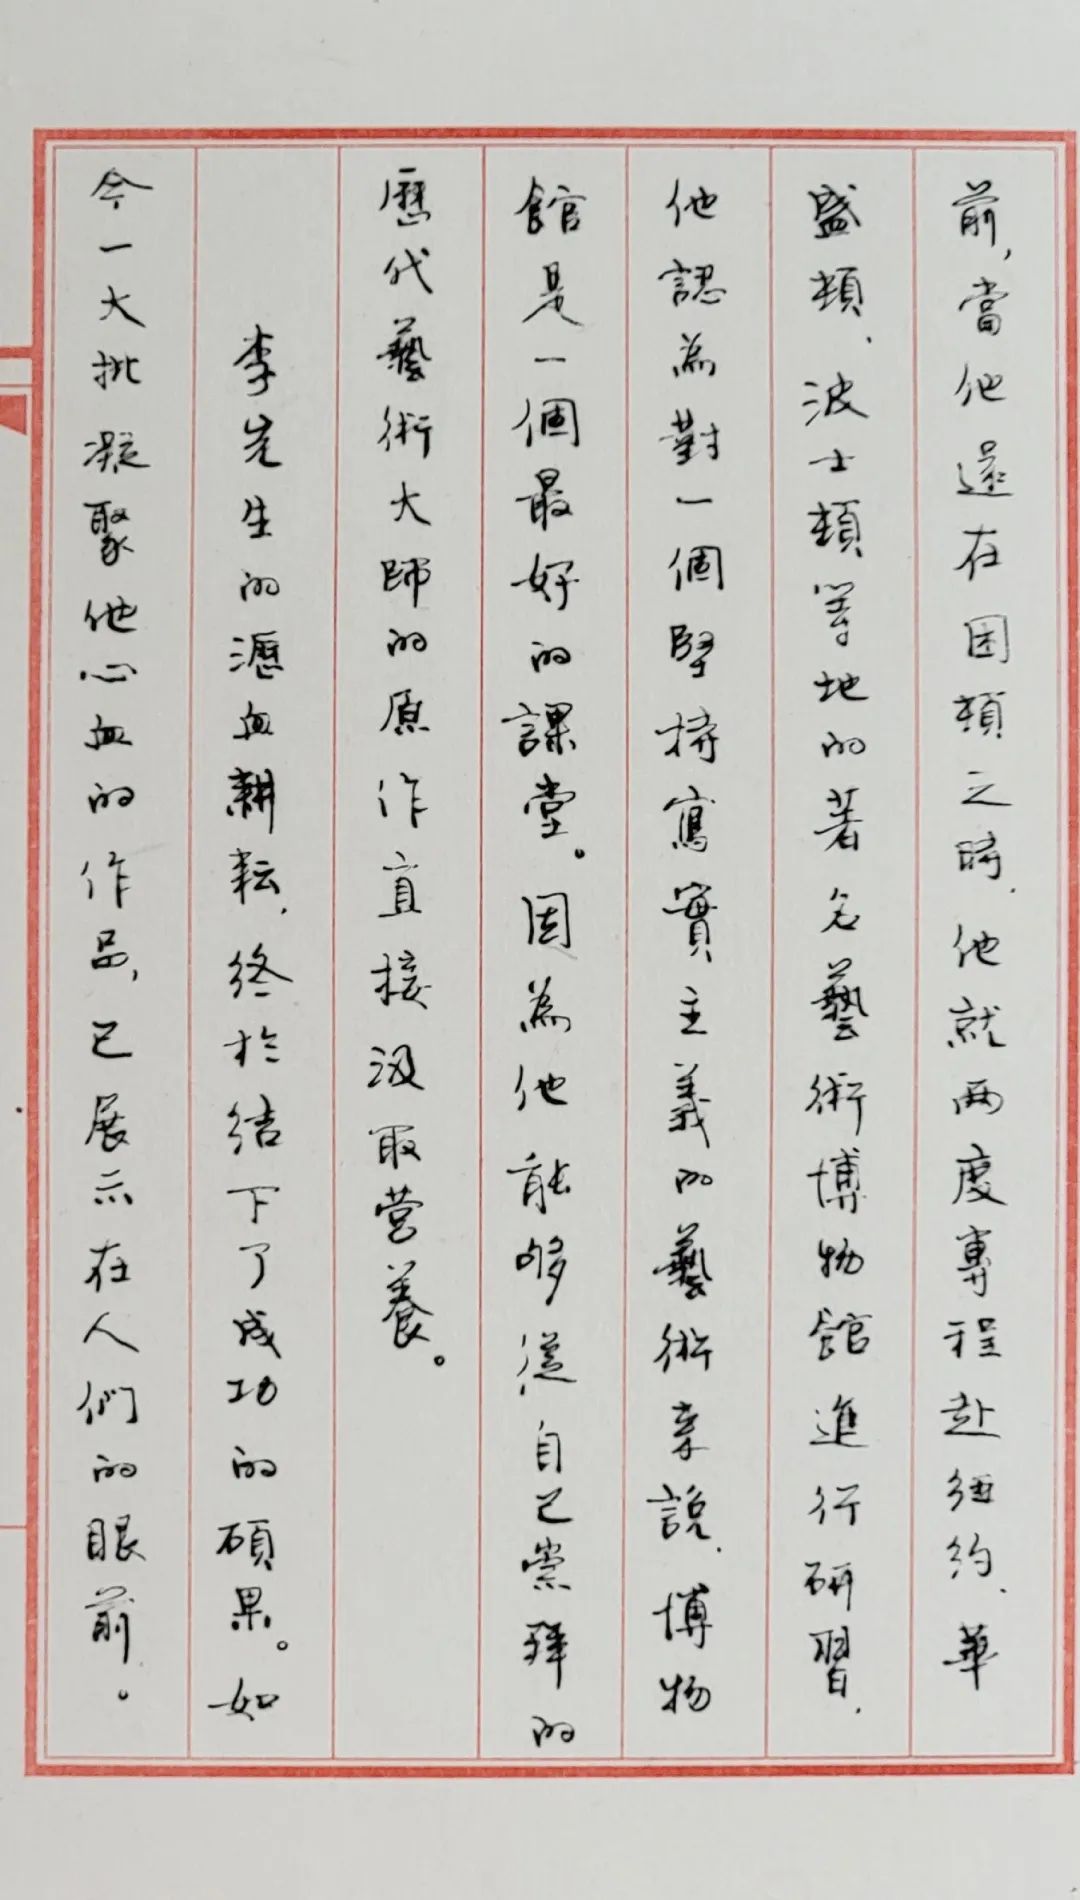 前，當他還在困頓之時，他就兩度專程赴紐約、華
盛頓、波士頓等地的著名藝術博物館進行研習，
他認為對一個堅持寫實主義的藝術來說，博物
館是一個最好的課堂。因為他能够從自己崇拜的
歷代藝術大師的原作直接汲取營養。
李先生的瀝血耕耘，終於結下了成功的碩果。如
今一大批凝聚他心血的作品，已展示在人們的眼前。